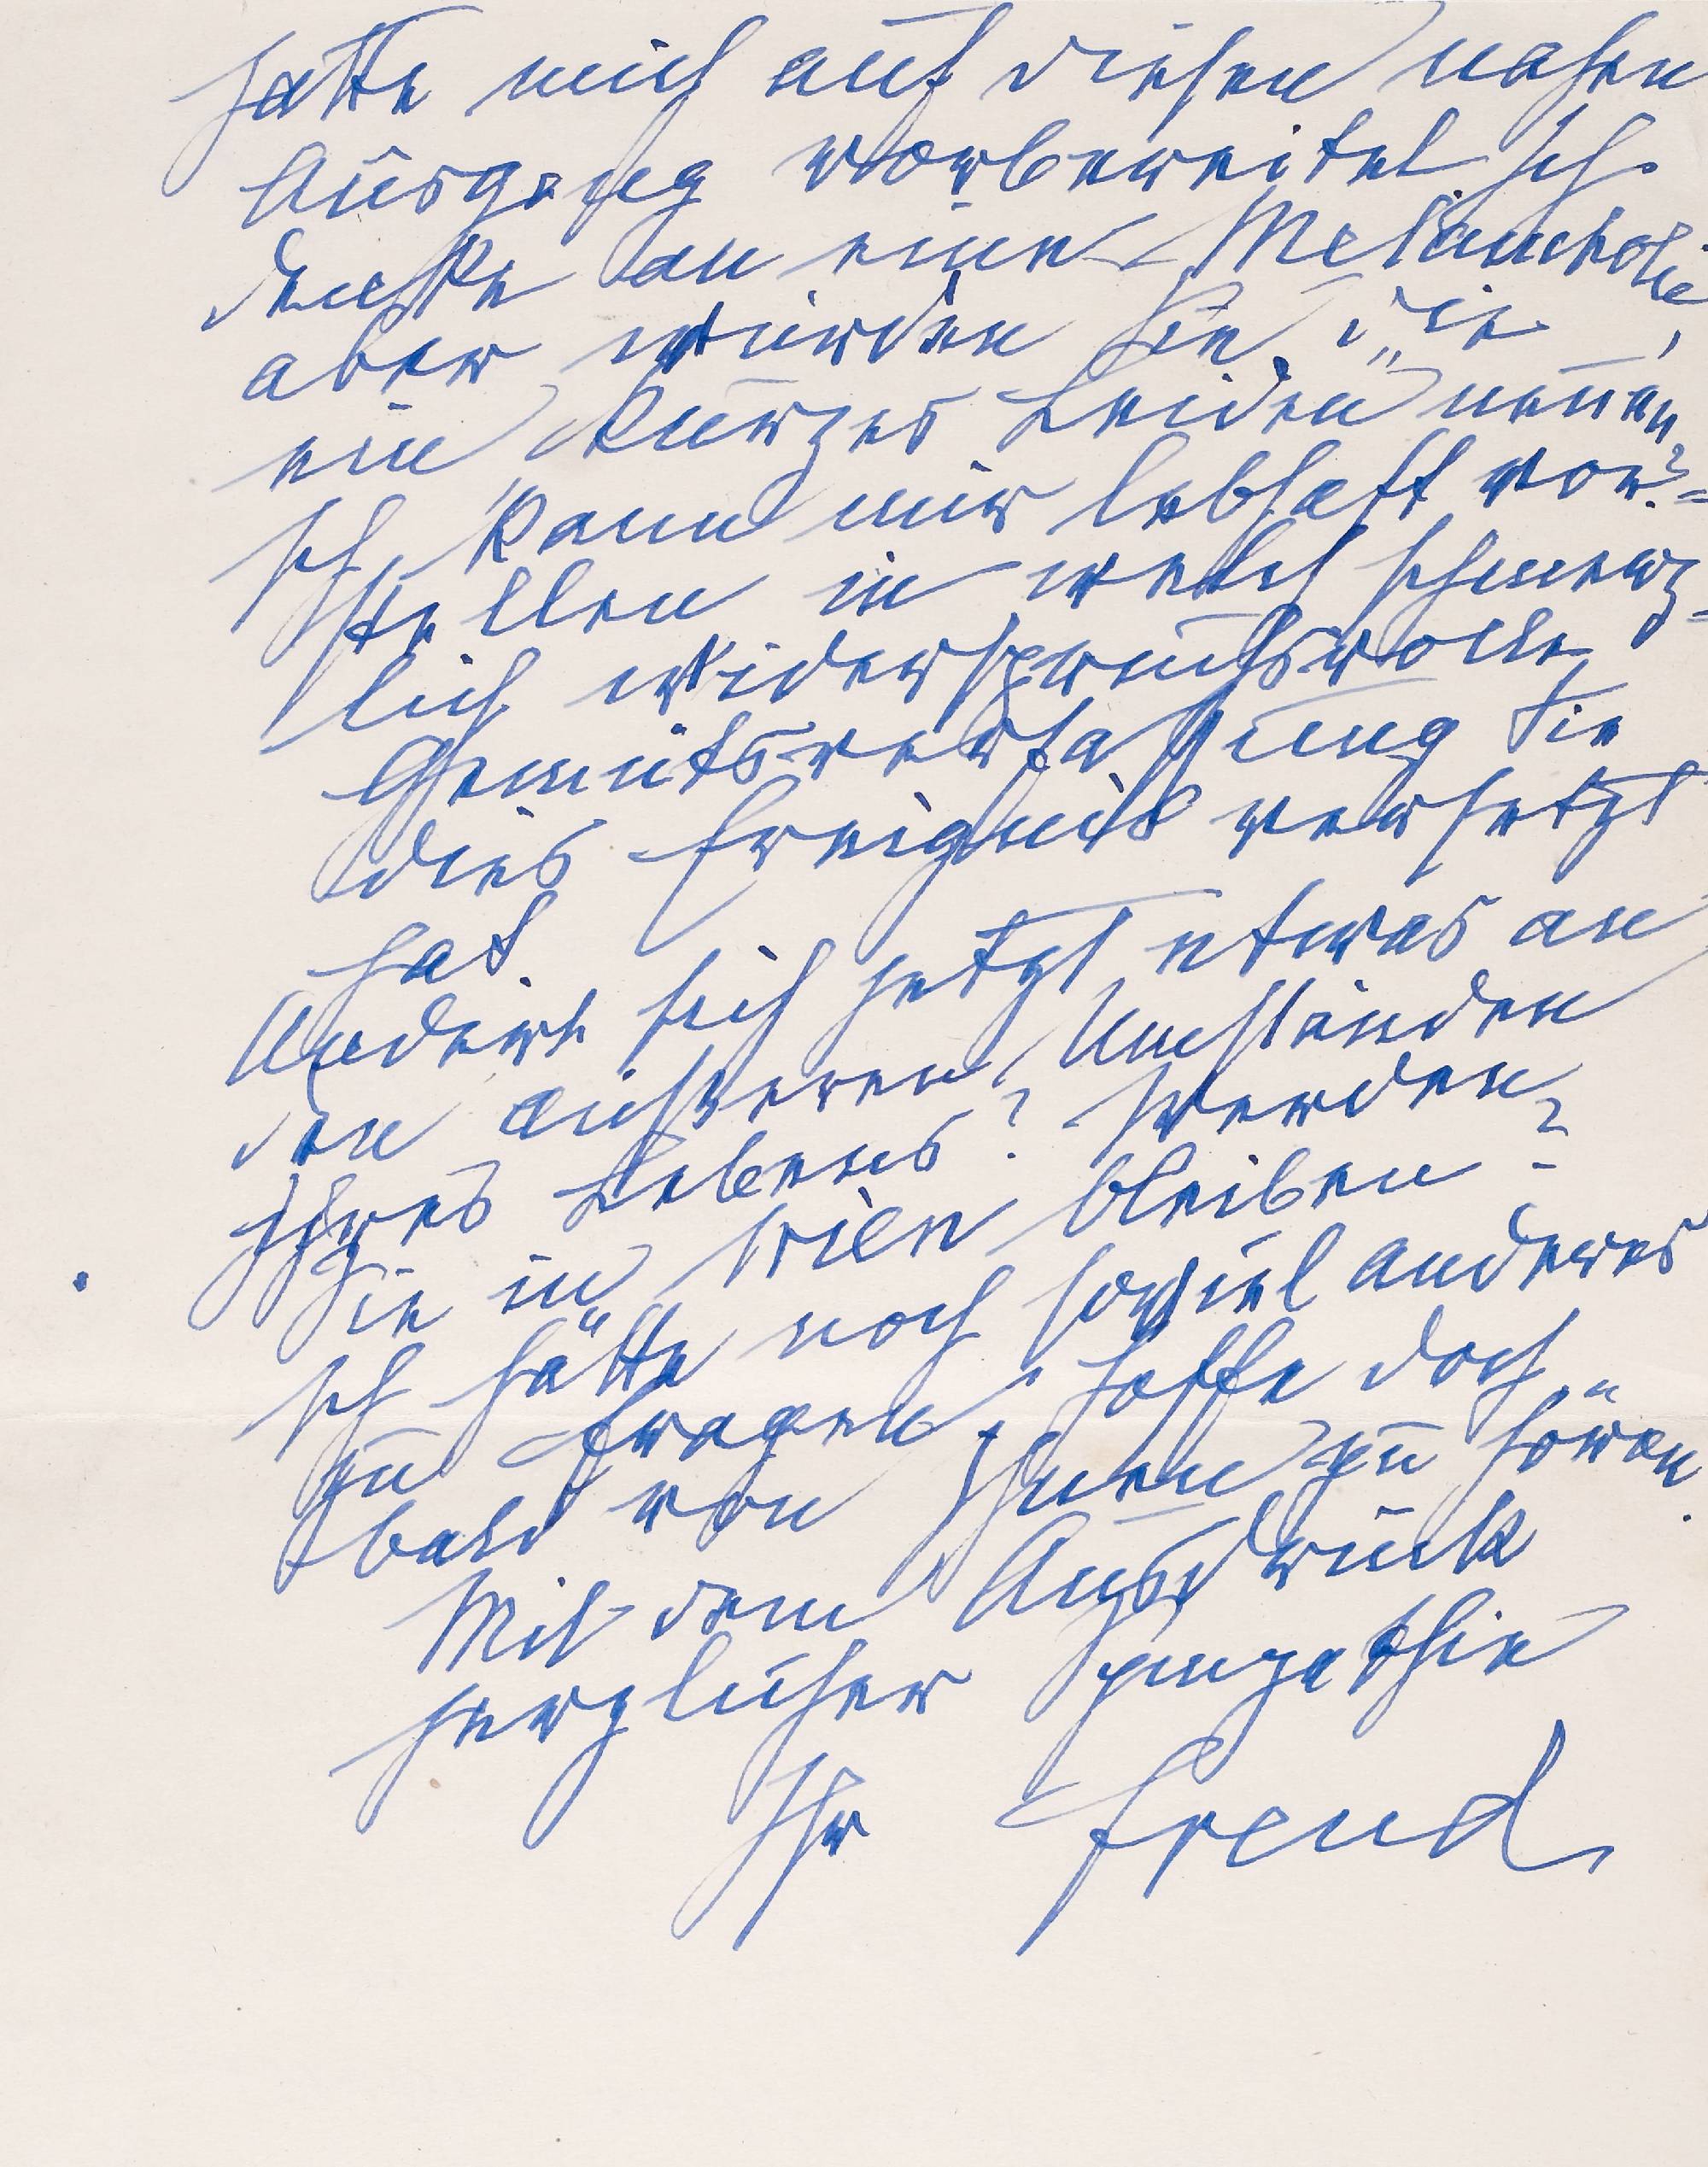 hatte mich auf diesen nahen
Ausgang vorbereitet. Ich
denke an eine Melancholie,
aber würden Sie die
ein „kurzes Leiden“ nennen?
Ich kann mir lebhaft vor=
stellen in welch schmerz=
lich widerspruchsvolle
Gemütsverfassung Sie
dies Ereignis versetzt
hat.
Ändert sich jetzt etwas an
den äußeren Umständen
Ihres Lebens? Werden
Sie in Wien bleiben?
Ich hätte noch soviel anderes
zu fragen, hoffe doch
bald von Ihnen zu hören.
Mit dem Ausdruck
herzlicher Sympathie
Ihr Freud